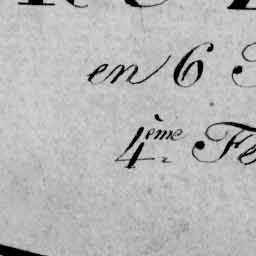 en 6
4ème Fe